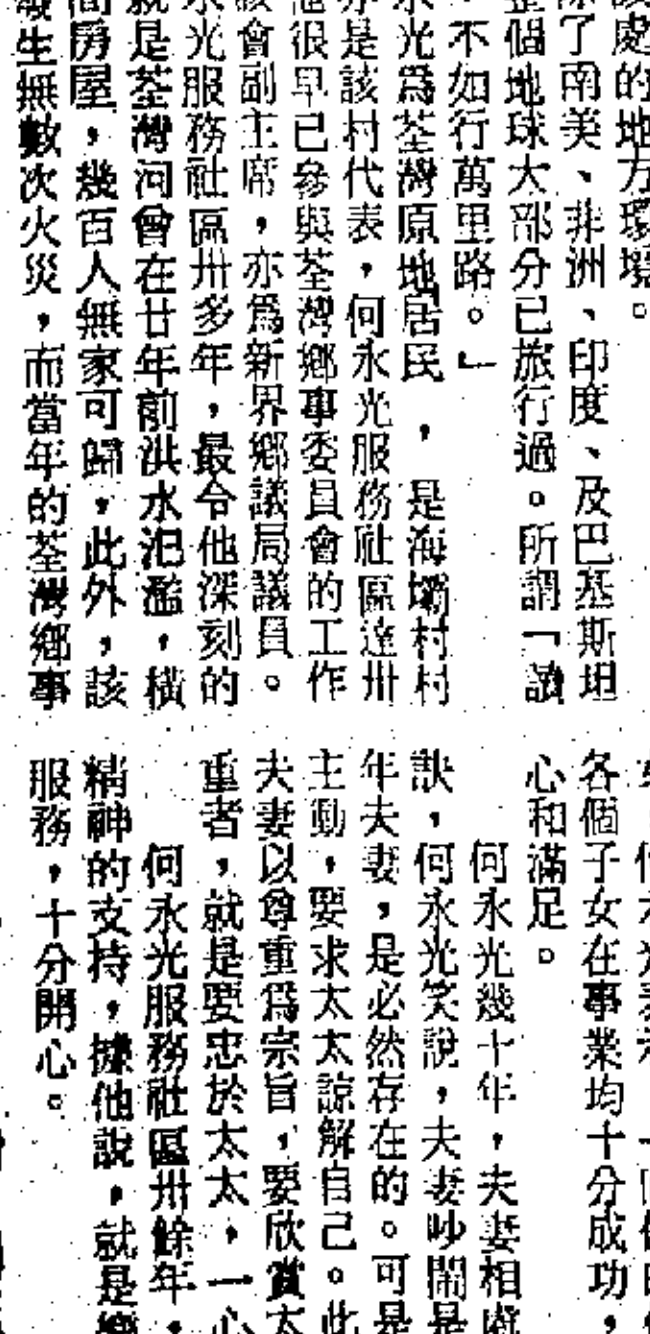 該處的地方環境。
除了南美、非洲、印度、及巴基斯坦
整個地球大部分已旅行過。所謂「讀
不如行萬里路。」
永光為荃灣原地居民，是海壩村村
亦是該村代表，何永光服務社區達卅
他很早已參與荃灣鄉事委員會的工作
該會副主席，亦為新界鄉議局議員。
永光服務社區卅多年，最令他深刻的
就是荃灣河曾在廿年前洪水氾濫，橫
間房屋，幾百人無家可歸，此外，該
發生無數次火災，而當年的荃灣鄉事
各個子女在事業均十分成功，
心和滿足。
何永光幾十年，夫妻相處
訣，何永光笑說，夫妻吵鬧是
年夫妻，是必然存在的。可是
主動，要求太太諒解自己。此
夫妻以尊重為宗旨，要欣賞太
重者，就是要忠於太太，一心
何永光服務社區卅餘年，
精神的支持，據他說，就是
服務，十分開心。